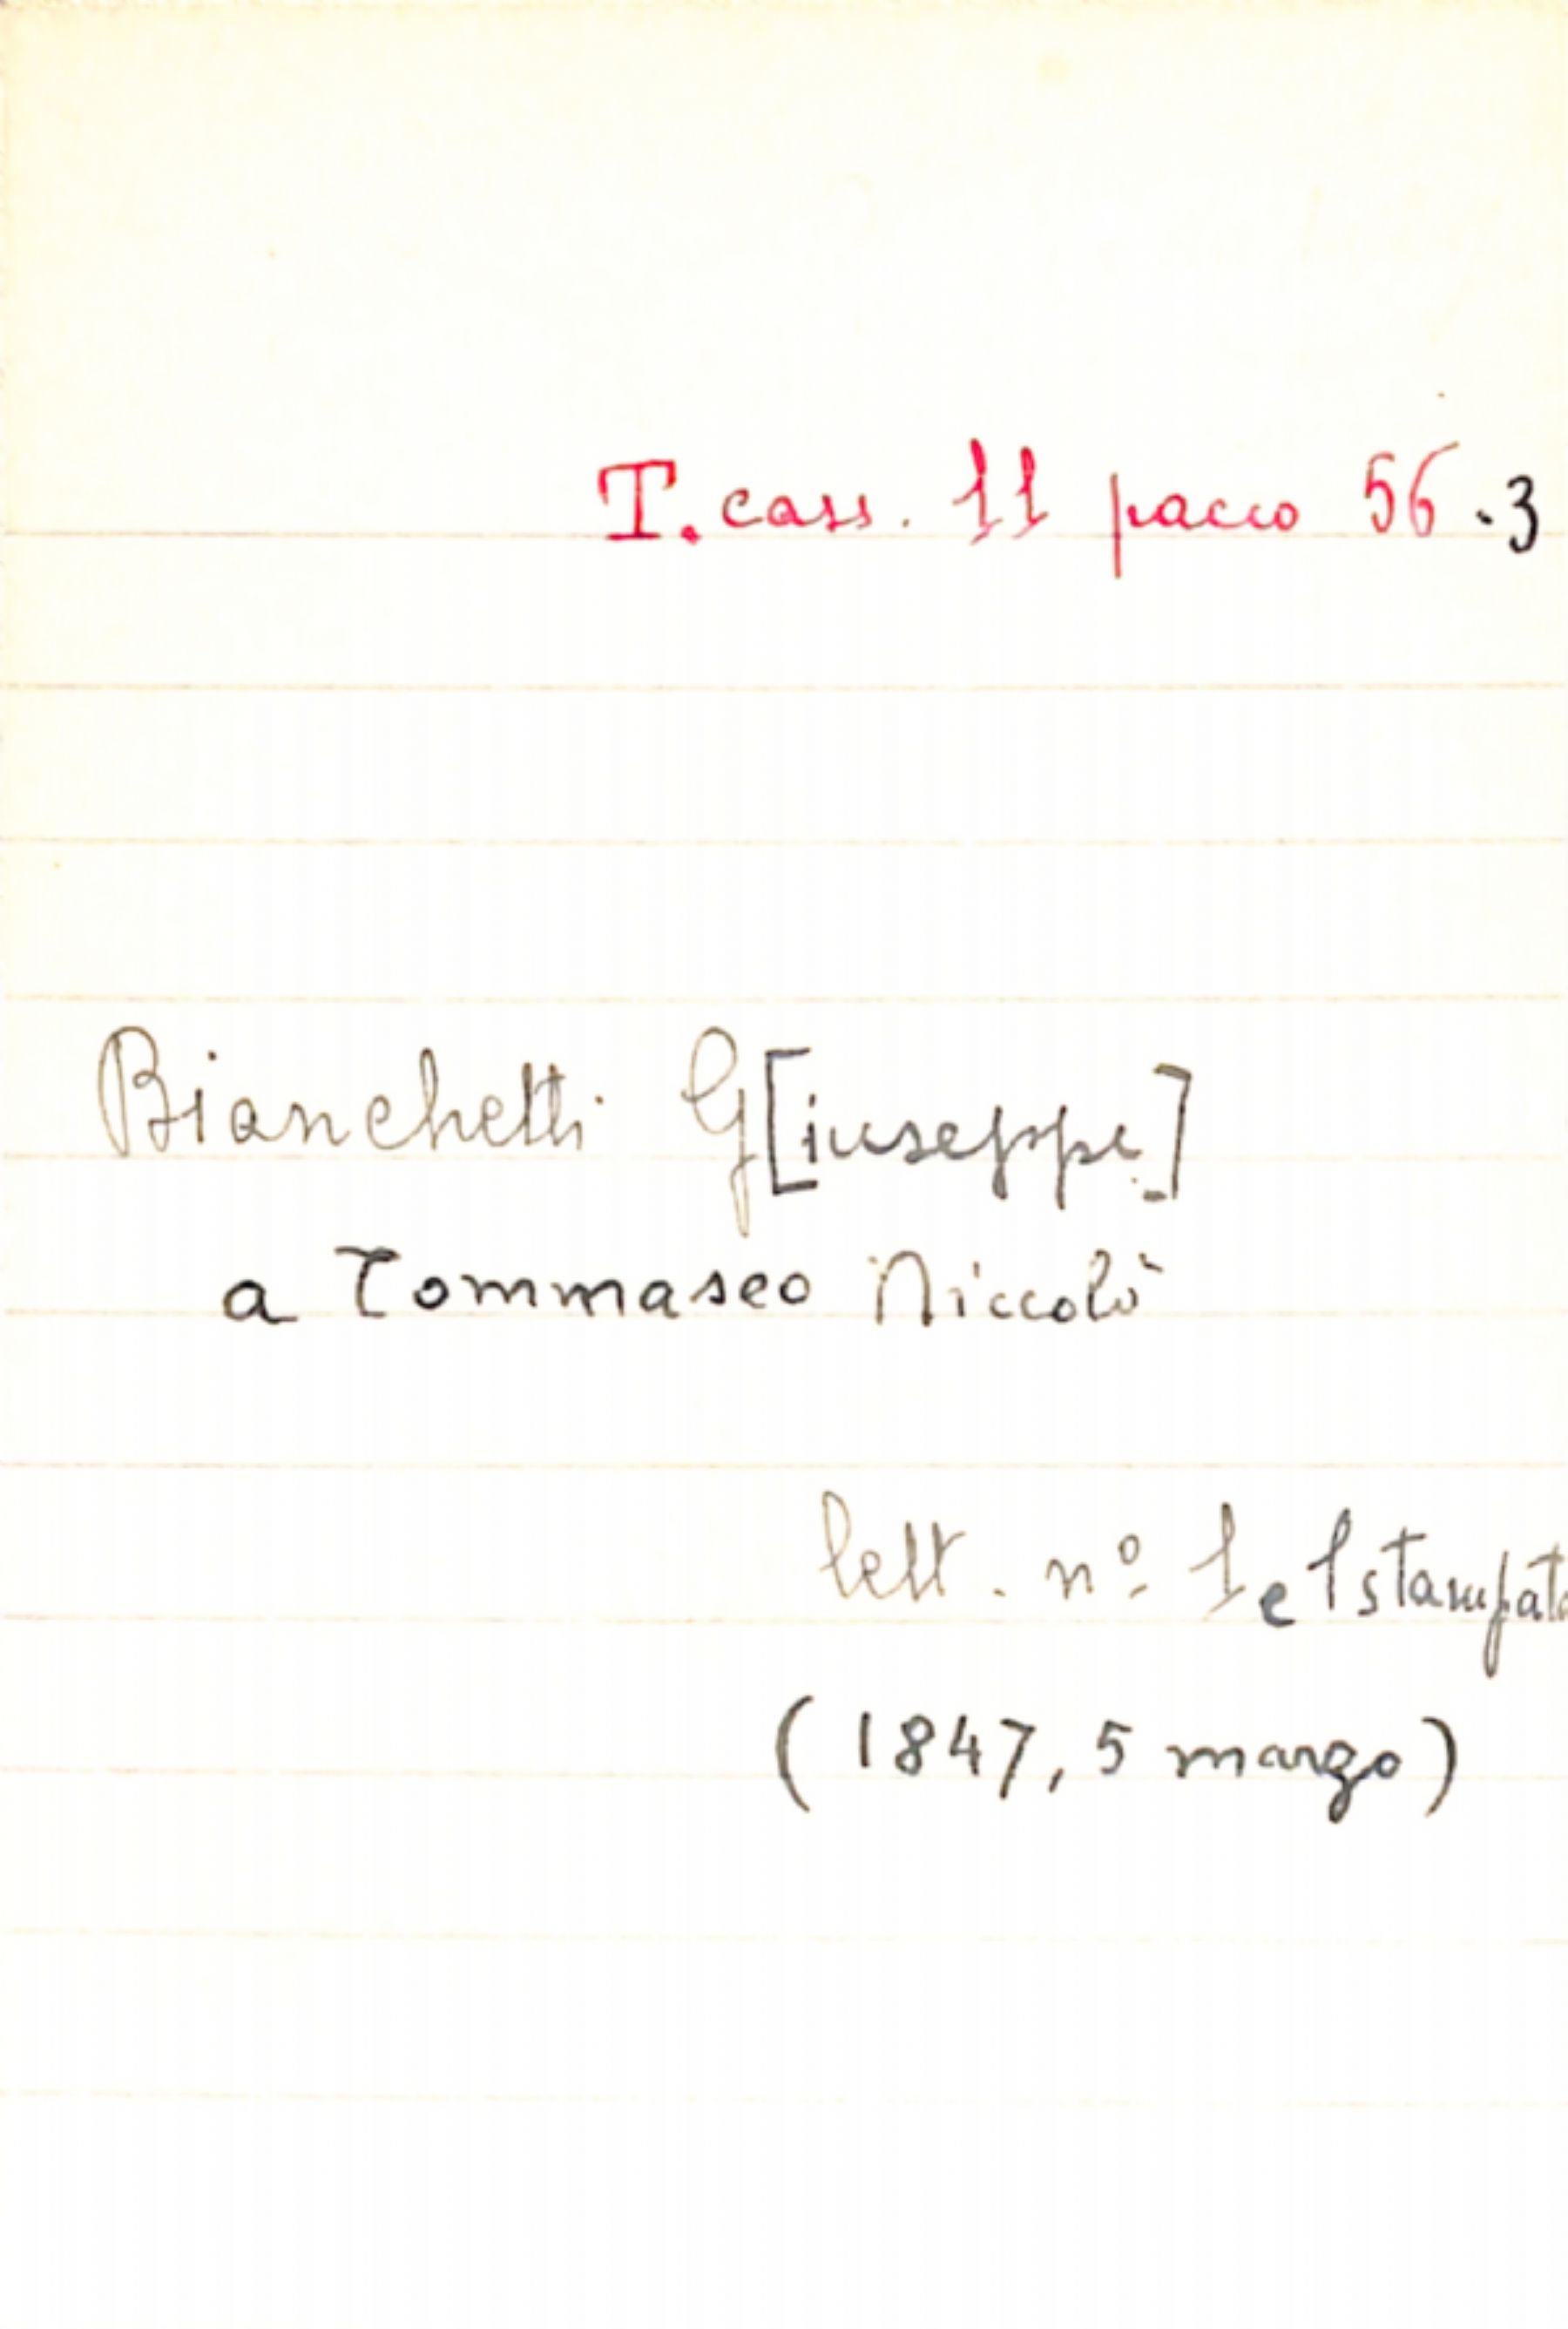 T. cass. 11 pacco 56.3
Bianchetti G[iuseppe]
a Tommaseo Niccolò
lett. nº 1 e 1 stampato
(1847, 5 marzo)